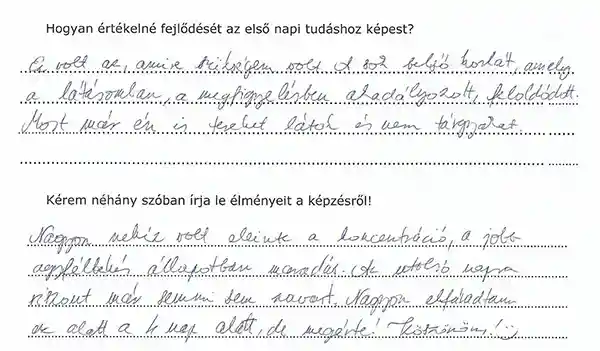 Hogyan értékelné fejlődését az első napi tudáshoz képest?
Ez volt az, amire szükségem volt. A sok belső korlát, amely
a látásomban, a megfigyelésben akadályozott, feloldódott.
Most már én is tereket látok és nem tárgyakat.
Kérem néhány szóban írja le élményeit a képzésről!
Nagyon nehéz volt eleinte a koncentráció, a jobb
agyféltekés állapotban maradás. Az utolsó napra
viszont már semmi sem zavart. Nagyon elfáradtam
ez alatt a 4 nap alatt, de megérte! Köszönöm! :)